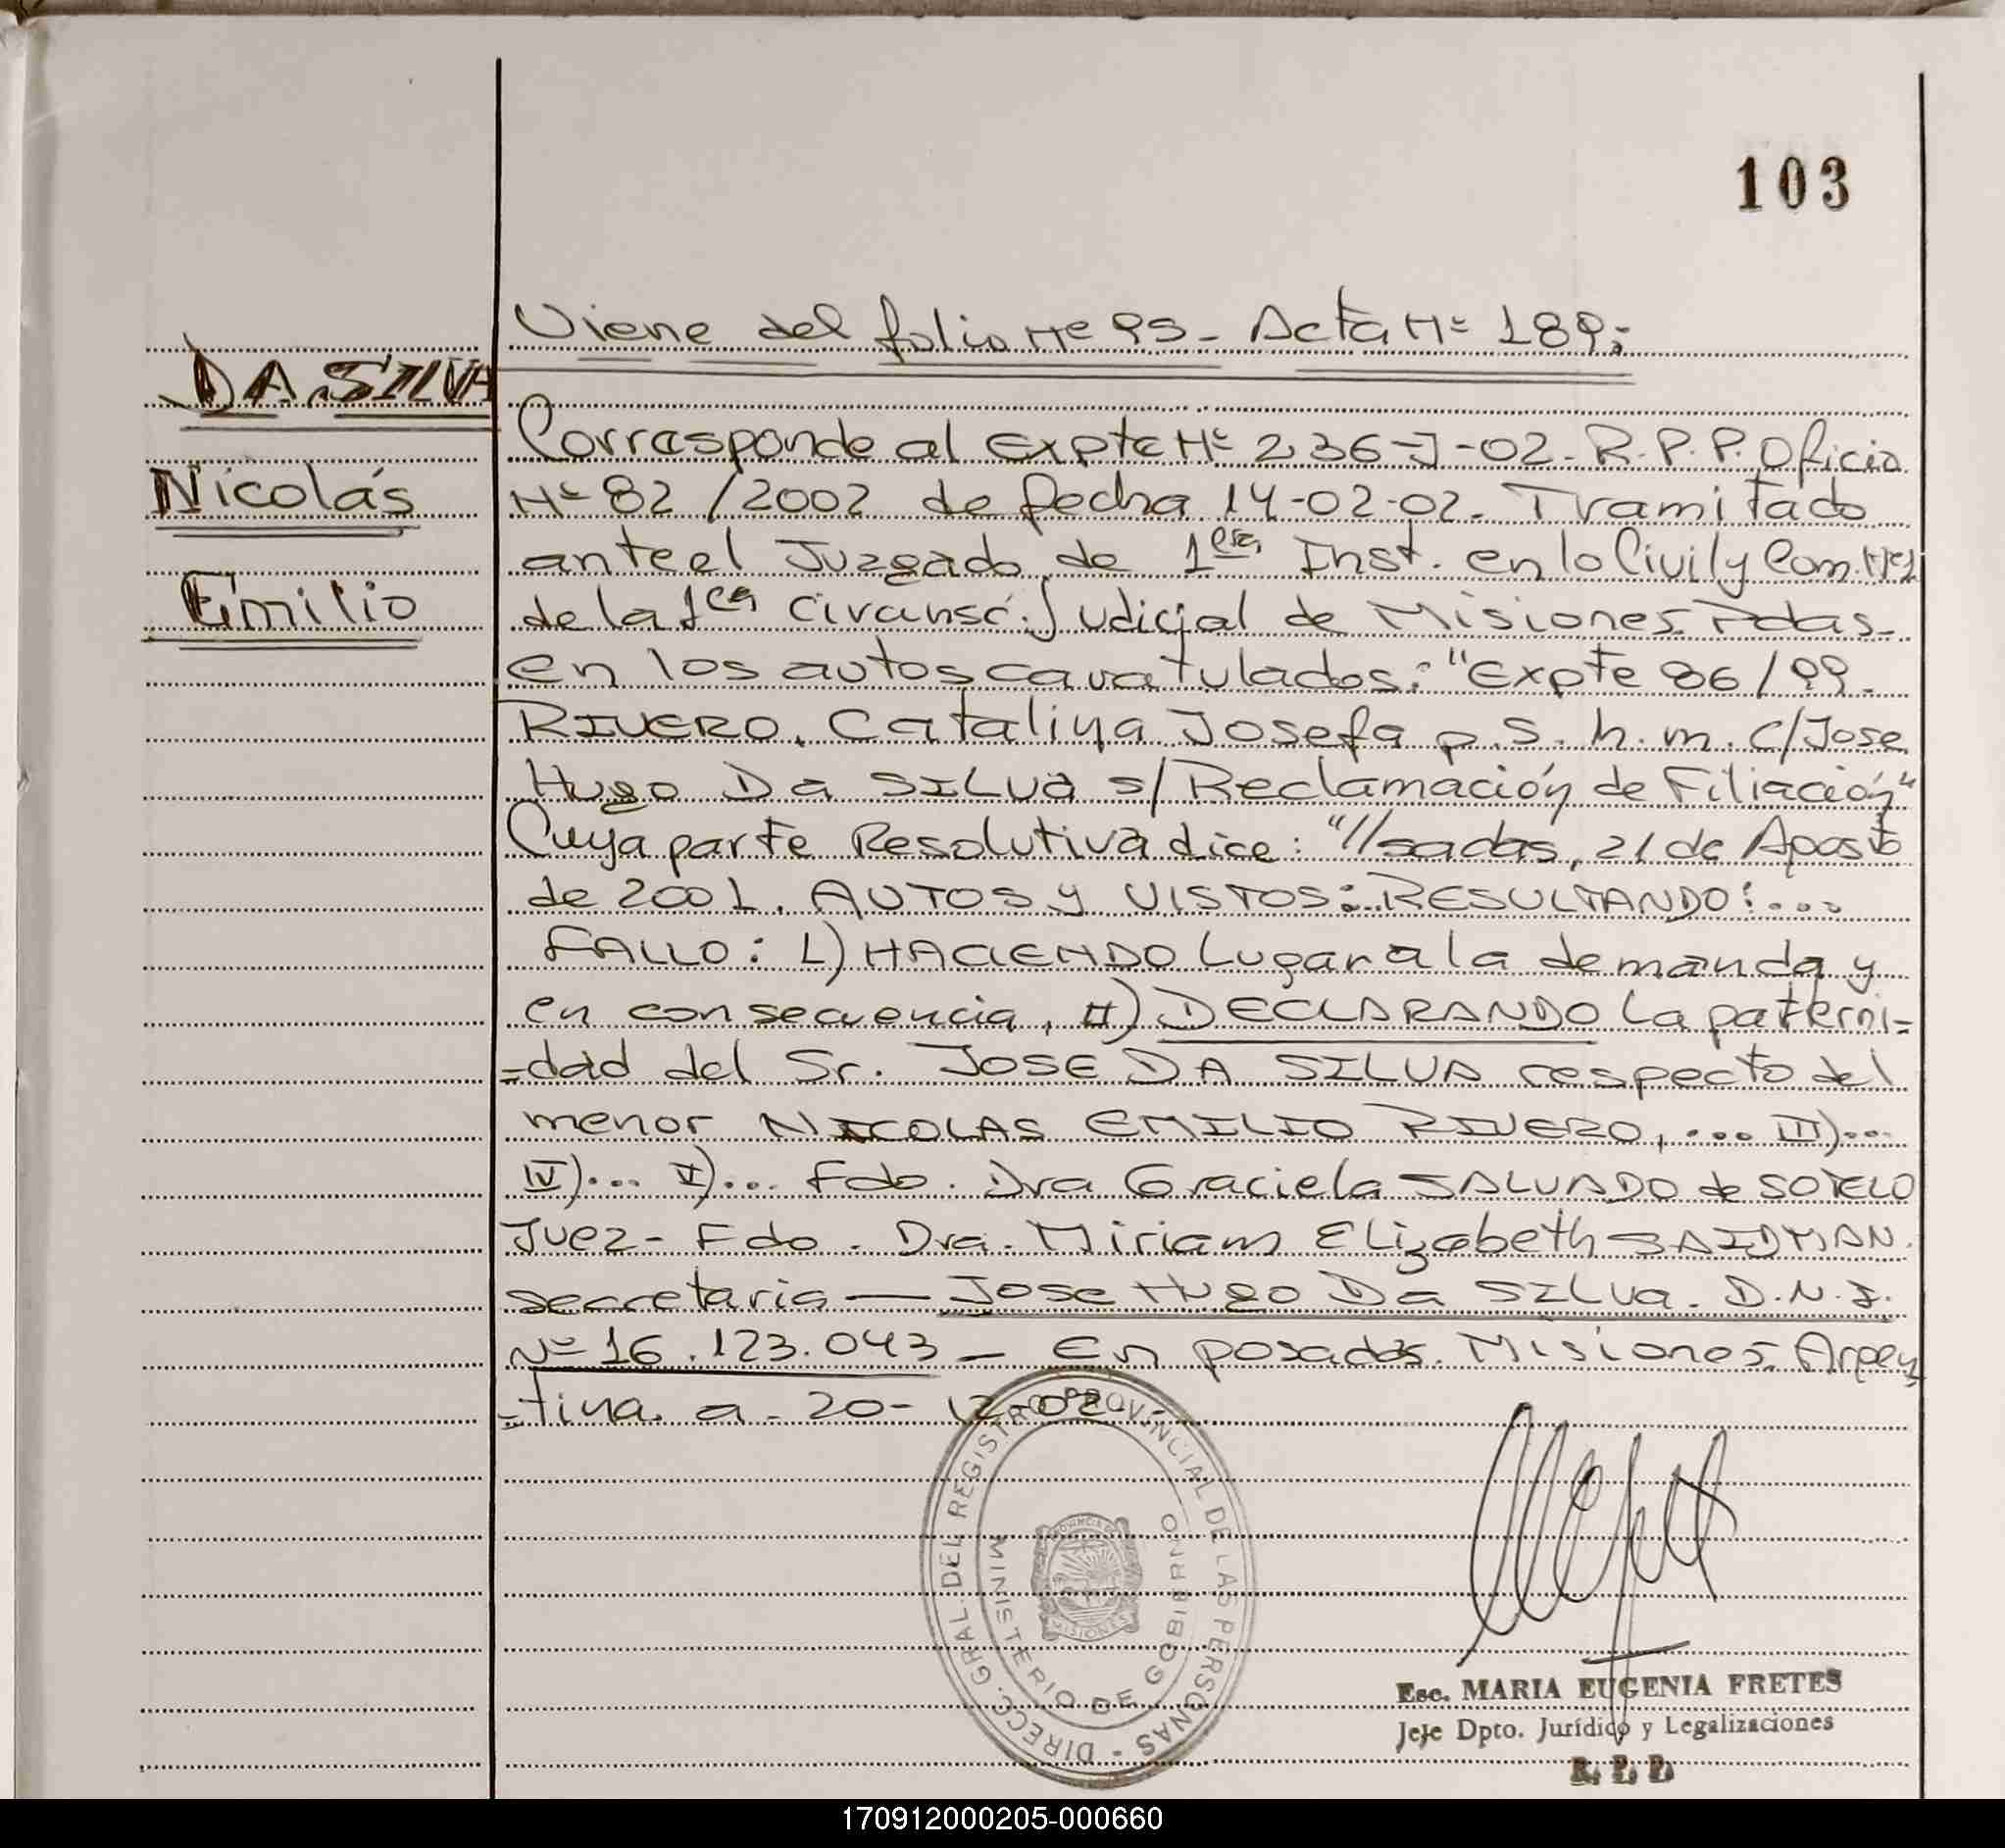 103
Viene del folio Nº 95 - Acta Nº 189;
DA SILVA
Corresponde al Expte Nº 236-J-02. R.P.P. Oficio
Nicolás
Nº 82 /2002 de fecha 14-02-02. Tramitado
ante el Juzgado de 1era Inst. en lo Civil y Com. Nº1
Emilio
de la 1era Circunsc. Judicial de Misiones Pdas.
en los autos cavatulados: "Expte 86/99.
RIVERO, Catalina Josefa p.s.h.m. c/Jose
Hugo Da SILVA s/Reclamación de Filiación"
Cuya parte Resolutiva dice: "//sadas, 21 de Agosto
de 2001. AUTOS y VISTOS: RESULTANDO:...
FALLO: I) HACIENDO Lugar a la demanda y
en consecuencia, II) DECLARANDO La paterni=
=dad del Sr. JOSE DA SILVA respecto del
menor NICOLAS EMILIO RIVERO, ... III)...
IV)... V)... Fdo. Dra Graciela SALVADO de SOTELO
Juez - Fdo. Dra. Miriam Elizabeth SAIDMAN.
secretaria — Jose Hugo Da SILVA. D.N.I.
Nº 16.123.043 - En posadas. Misiones. Argen
=tina. a - 20-12-02 -
DIRECC. GRAL. DEL REGISTRO PROVINCIAL DE LAS PERSONAS -
MINISTERIO DE GOBIERNO
PROVINCIA DE
MISIONES
Esc. MARIA EUGENIA FRETES
Jefe Dpto. Jurídico y Legalizaciones
R. P. P.
170912000205-000660